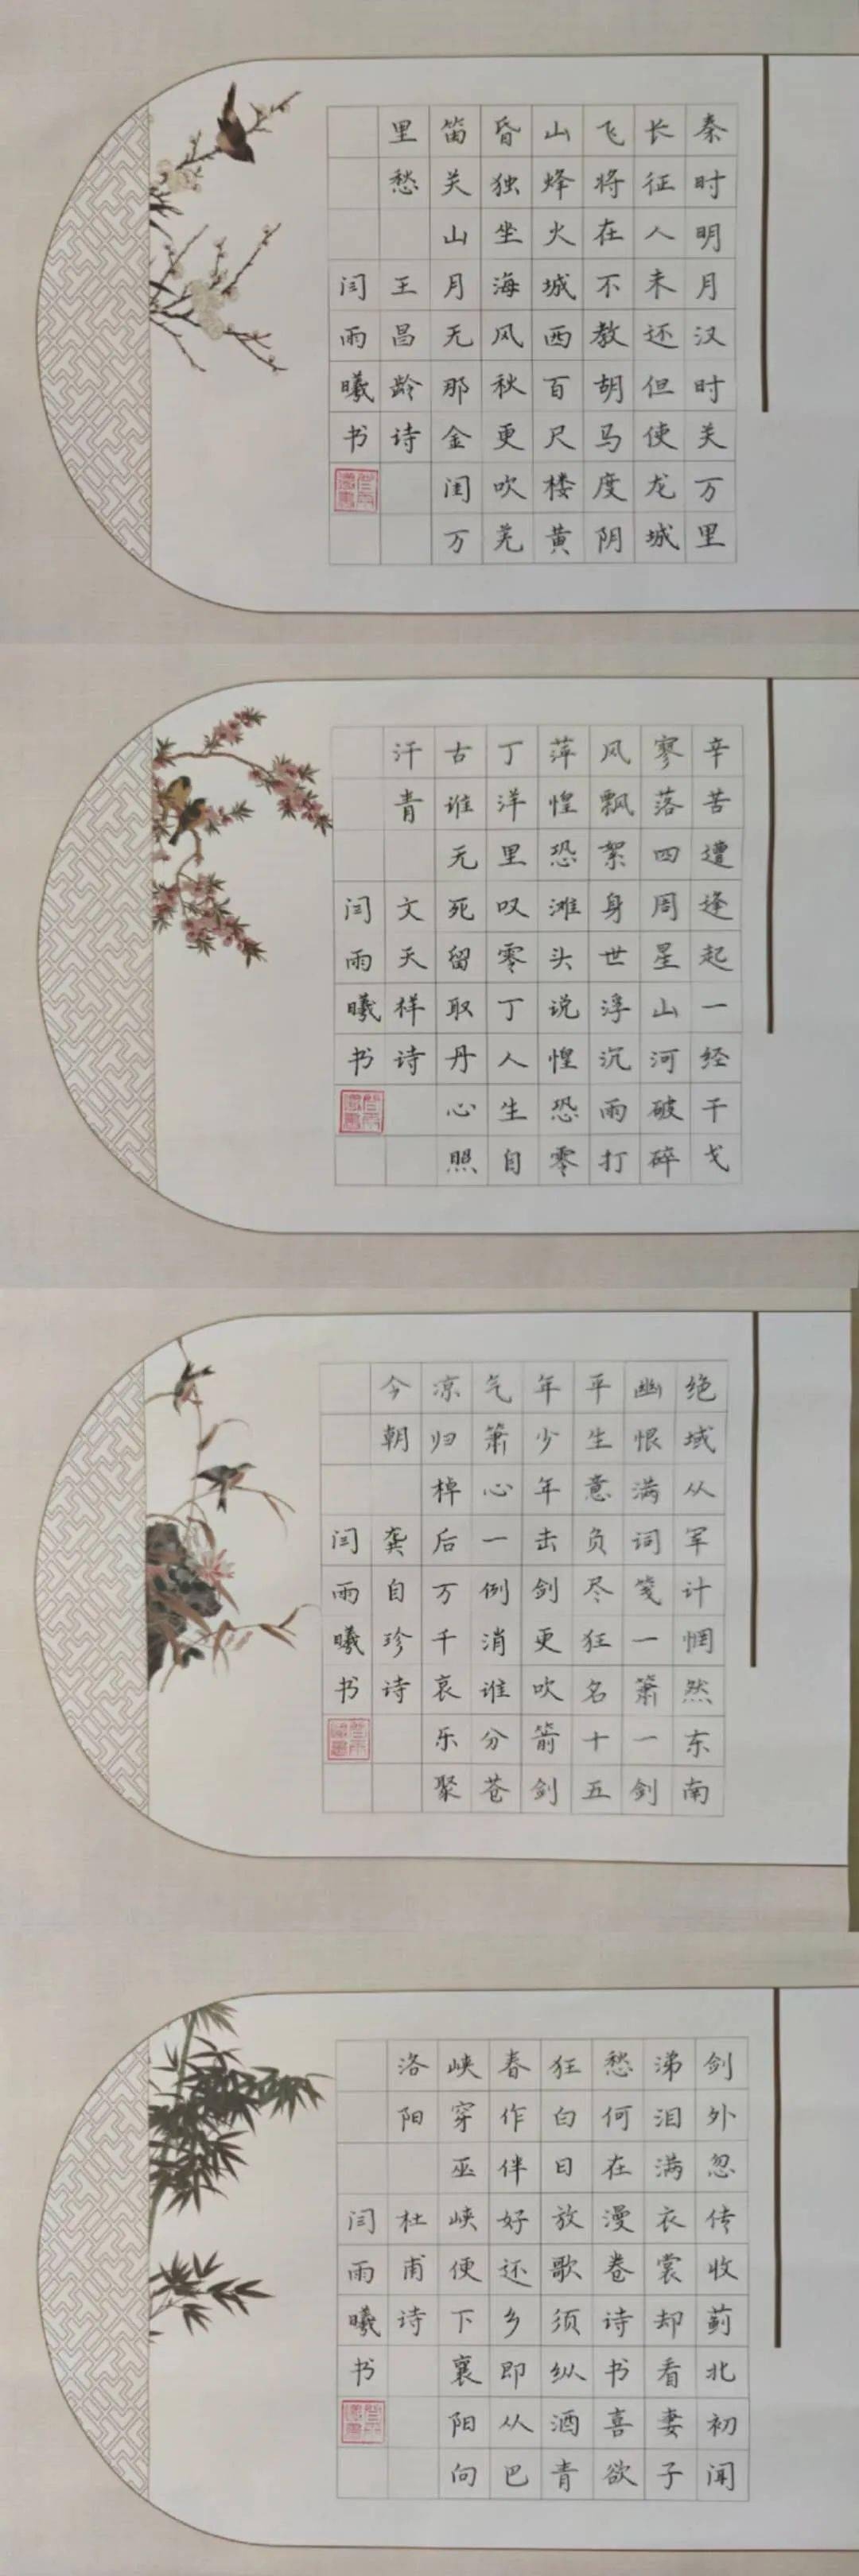 秦时明月汉时关万里
长征人未还但使龙城
飞将在不教胡马度阴
山烽火城西百尺楼黄
昏独坐海风秋更吹羌
笛关山月无那金闺万
里愁 王昌龄诗
闫雨曦书
辛苦遭逢起一经干戈
寥落四周星山河破碎
风飘絮身世浮沉雨打
萍惶恐滩头说惶恐零
丁洋里叹零丁人生自
古谁无死留取丹心照
汗青 文天祥诗
闫雨曦书
绝域从军计惘然东南
幽恨满词笺一箫一剑
平生意负尽狂名十五
年少年击剑更吹箭剑
气箫心一例消谁分苍
凉归棹后万千哀乐聚
今朝 龚自珍诗
闫雨曦书
剑外忽传收蓟北初闻
涕泪满衣裳却看妻子
愁何在漫卷诗书喜欲
狂白日放歌须纵酒青
春作伴好还乡即从巴
峡穿巫峡便下襄阳向
洛阳 杜甫诗
闫雨曦书